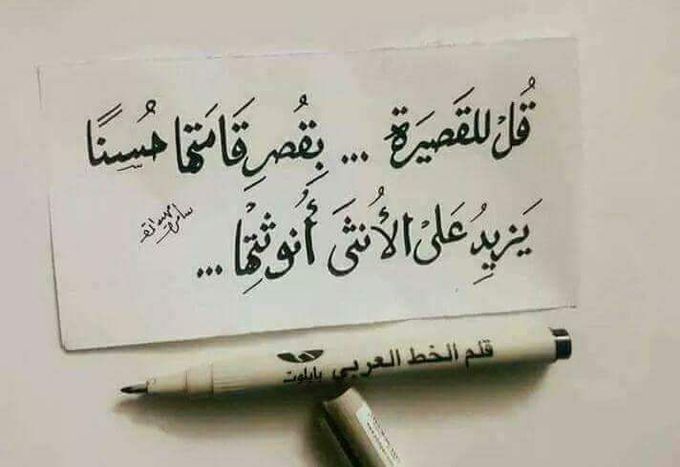 قُلْ للقَصِيرَةِ ... بِقُصرِ قَامَتِها حُسنًا
يَزِيدُ عَلى الأُنثَى أُنوثَتِها ...
قلم الخط العربي بايلوت